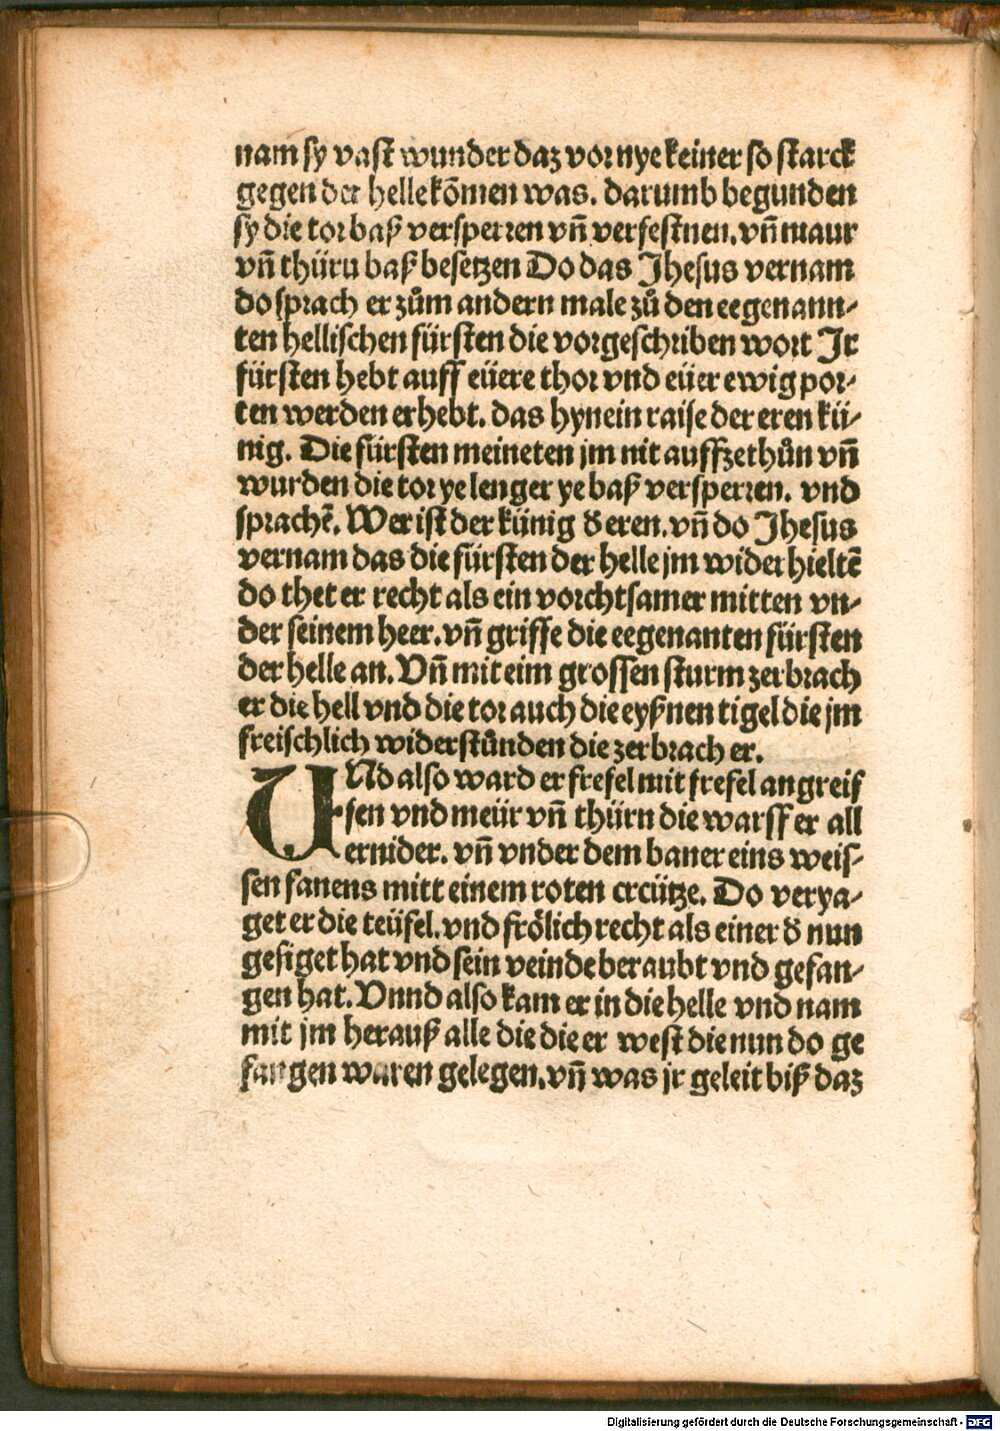 nam sy vast wunder daz vor nye keiner so starck
gegen der helle kõmen was. darumb begunden
sy die tor baß versperren vñ verfestnen. vñ maur
vñ thüru baß besetzen Do das Jhesus vernam
do sprach er zům andern male zů den eegenann⸗
ten hellischen fürsten die vorgeschriben wort Jr
fürsten hebt auff eüere thor vnd eüer ewig por⸗
ten werden erhebt. das hynein raise der eren kü⸗
nig. Die fürsten meineten jm nit auffzethůn vñ
wurden die tor ye lenger ye baß versperren. vnd
sprachẽ. Wer ist der künig đ eren. vñ do Jhesus
vernam das die fürsten der helle jm wider hieltẽ
do thet er recht als ein vorchtsamer mitten vn⸗
der seinem heer. vñ griffe die eegenanten fürsten
der helle an. Vñ mit eim grossen sturm zerbrach
er die hell vnd die tor auch die eyßnen tigel die jm
freischlich widerstůnden die zerbrach er.
UNd also ward er frefel mit frefel angreif
fen vnd meür vñ thürn die warff er all
ernider. vñ vnder dem baner eins weis⸗
sen fanens mitt einem roten crcütze. Do verya⸗
get er die teüfel. vnd frölich recht als einer đ nun
gesiget hat vnd sein veinde beraubt vnd gefan⸗
gen hat. Vnnd also kam er in die helle vnd nam
mit jm herauß alle die die er west die nun do ge
fangen waren gelegen. vñ was jr geleit biß daz
Digitalisierung gefördert durch die Deutsche Forschungsgemeinschaft - DFG